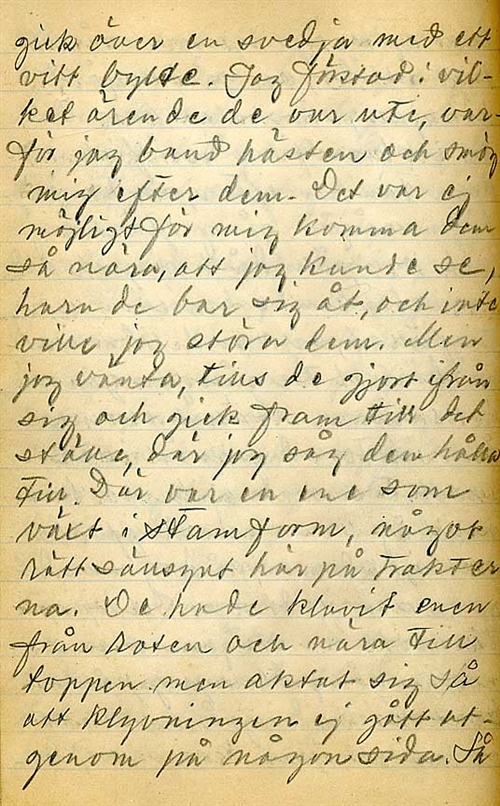 gick över en svedja med ett
vitt bylte. Jag förstod i vil-
ket ärende de var ute, var-
för jag band hästen och smög
mig efter dem. Det var ej
möjligt för mig komma dem
så nära, att jag kunde se,
huru de bar sig åt, och inte
ville jag störa dem. Men
jag vänta, tills de gjort ifrån
sig och gick fram till det
ställe, där jag såg dem hålla
till. Där var en ene som
växt i stamform, något
rätt sällsynt här på trakter
na. De hade kluvit enen
från roten och nära till
toppen men aktat sig så
att klyvningen ej gått ut-
genom på någon sida. Så